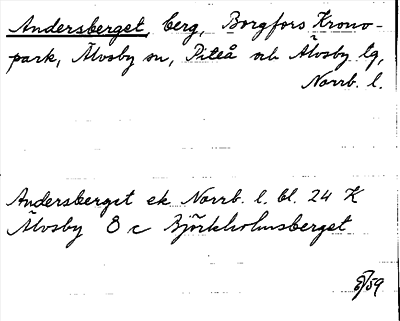 Andersberget, berg, Borgfors Krono-
park, Älvsby sn, Piteå och Älvsby tg,
Norrb. l.
Andersberget ek Norrb. l. bl. 24 K
Älvsby 8 c Björkholmsberget
8/59